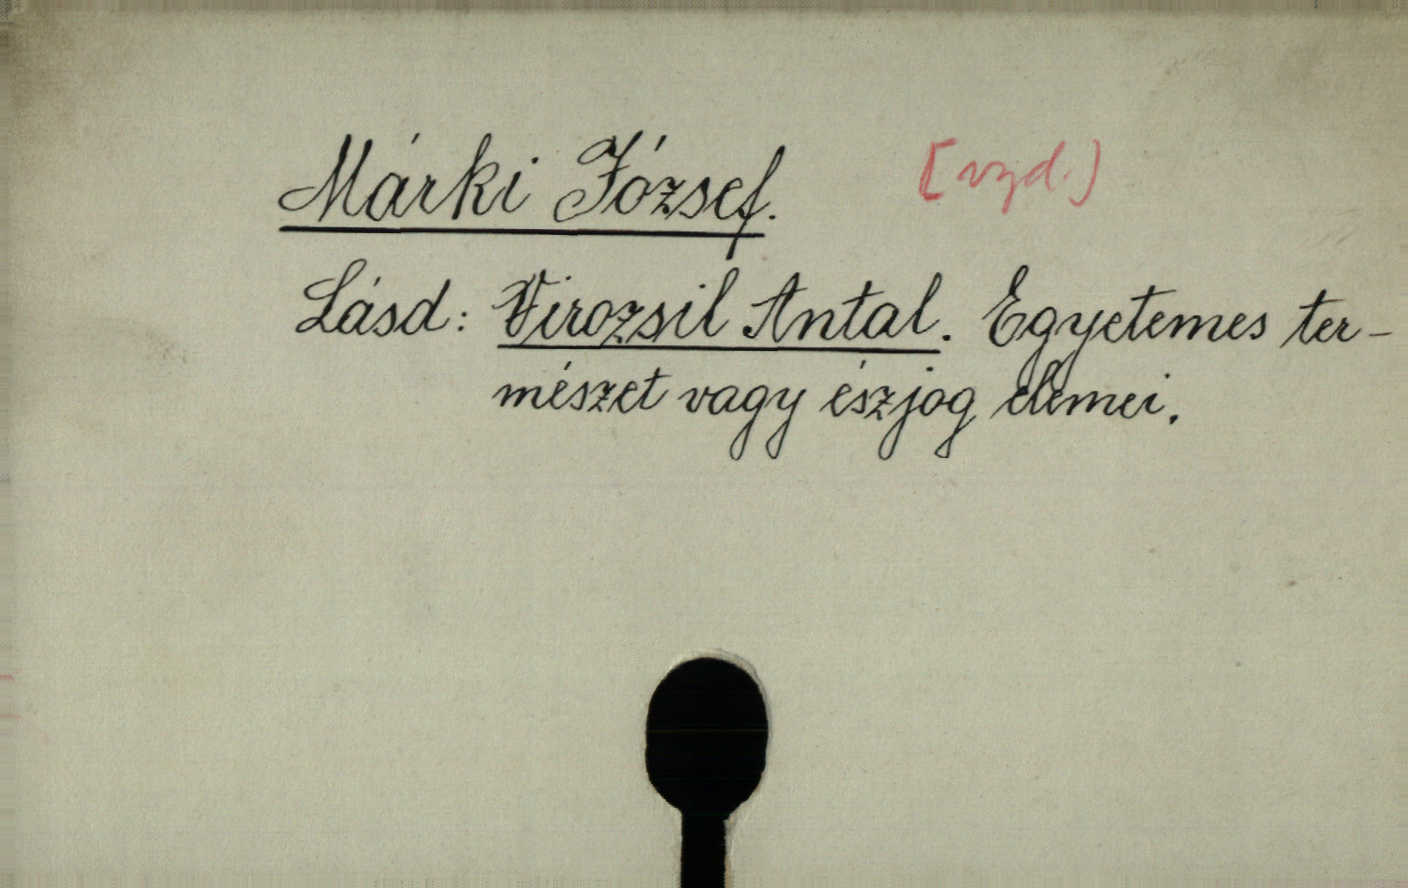 Márki József. [vyd.)
Lásd: Virozsil Antal. Egyetemes ter-
mészet vagy észjog elemei.